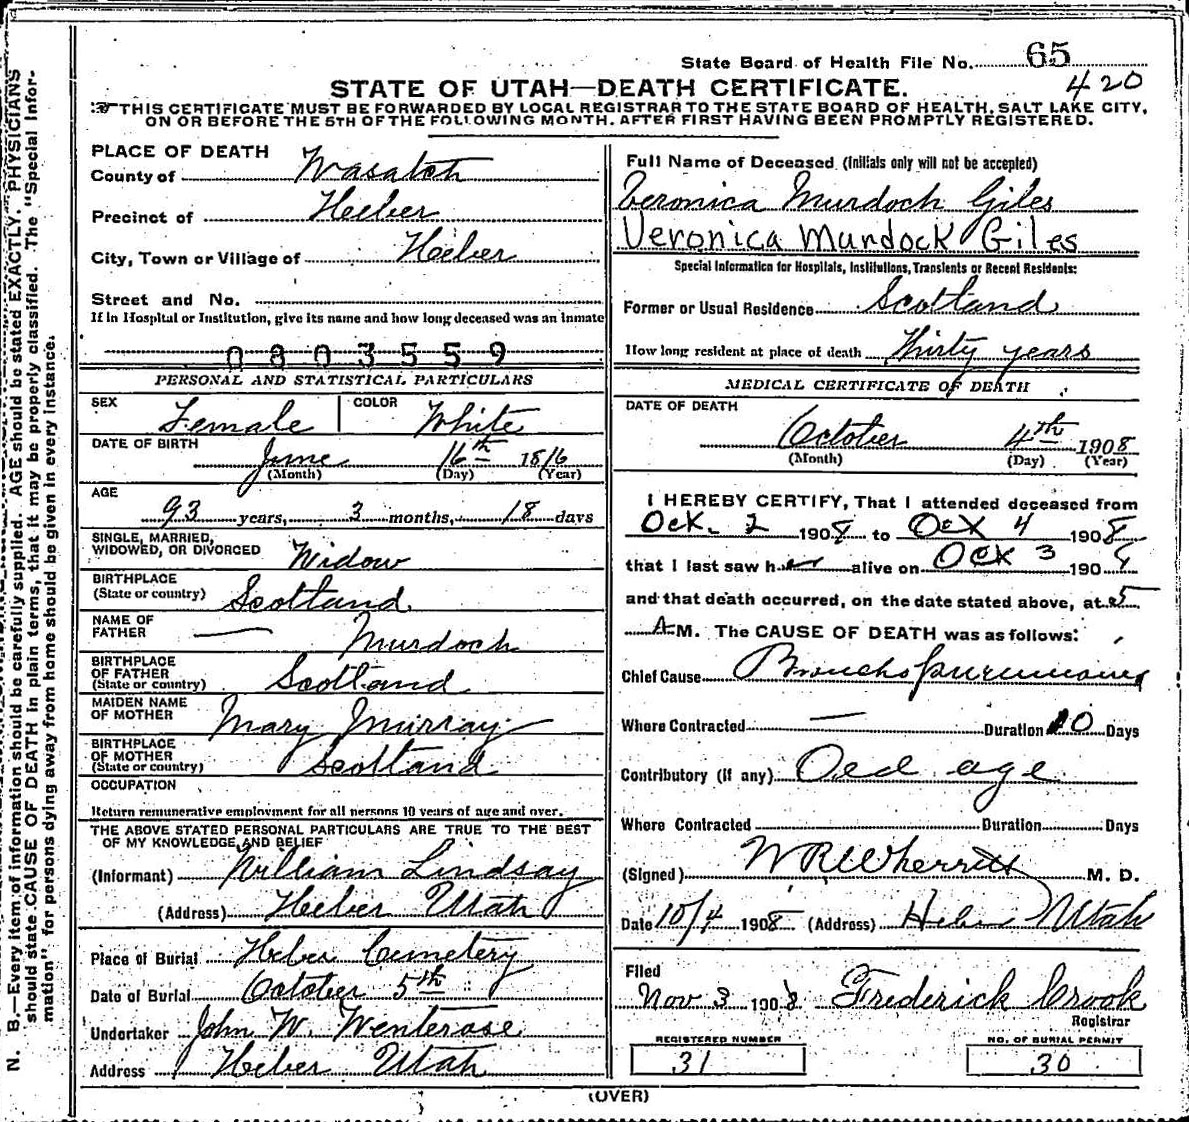 State Board of Health File No. 65
420
STATE OF UTAH—DEATH CERTIFICATE.
THIS CERTIFICATE MUST BE FORWARDED BY LOCAL REGISTRAR TO THE STATE BOARD OF HEALTH, SALT LAKE CITY,
ON OR BEFORE THE 5TH OF THE FOLLOWING MONTH, AFTER FIRST HAVING BEEN PROMPTLY REGISTERED.
N. B.—Every item of information should be carefully supplied. AGE should be stated EXACTLY. PHYSICIANS
should state CAUSE OF DEATH in plain terms, that it may be properly classified. The "Special Infor-
mation" for persons dying away from home should be given in every instance.
PLACE OF DEATH
County of Wasatch
Precinct of Heber
City, Town or Village of Heber
Street and No.
If in Hospital or Institution, give its name and how long deceased was an inmate
0803559
PERSONAL AND STATISTICAL PARTICULARS
SEX Female COLOR White
DATE OF BIRTH
June 16th 1816
(Month) (Day) (Year)
AGE
93 years, 3 months, 18 days
SINGLE, MARRIED,
WIDOWED, OR DIVORCED Widow
BIRTHPLACE
(State or country) Scotland
NAME OF
FATHER — Murdoch
BIRTHPLACE
OF FATHER
(State or country) Scotland
MAIDEN NAME
OF MOTHER Mary Murray
BIRTHPLACE
OF MOTHER
(State or country) Scotland
OCCUPATION
Return remunerative employment for all persons 10 years of age and over.
THE ABOVE STATED PERSONAL PARTICULARS ARE TRUE TO THE BEST
OF MY KNOWLEDGE AND BELIEF
(Informant) William Lindsay
(Address) Heber Utah
Place of Burial Heber Cemetery
Date of Burial October 5th
Undertaker John W. Wenterose
Address Heber Utah
Full Name of Deceased (Initials only will not be accepted)
Veronica Murdoch Giles
Veronica Murdock Giles
Special Information for Hospitals, Institutions, Transients or Recent Residents:
Former or Usual Residence Scotland
How long resident at place of death Thirty years
MEDICAL CERTIFICATE OF DEATH
DATE OF DEATH
October 4th 1908
(Month) (Day) (Year)
I HEREBY CERTIFY, That I attended deceased from
Oct. 2 1908 to Oct 4 1908
that I last saw her alive on Oct 3 1908
and that death occurred, on the date stated above, at 5
A M. The CAUSE OF DEATH was as follows:
Chief Cause Broncho pneumonia
Where Contracted — Duration 10 Days
Contributory (if any) Old age
Where Contracted Duration Days
(Signed) W R Wherritt M. D.
Date 10/4 1908 (Address) Heber Utah
Filed
Nov 3 1908 Frederick Crook
Registrar
REGISTERED NUMBER
31
NO. OF BURIAL PERMIT
30
(OVER)